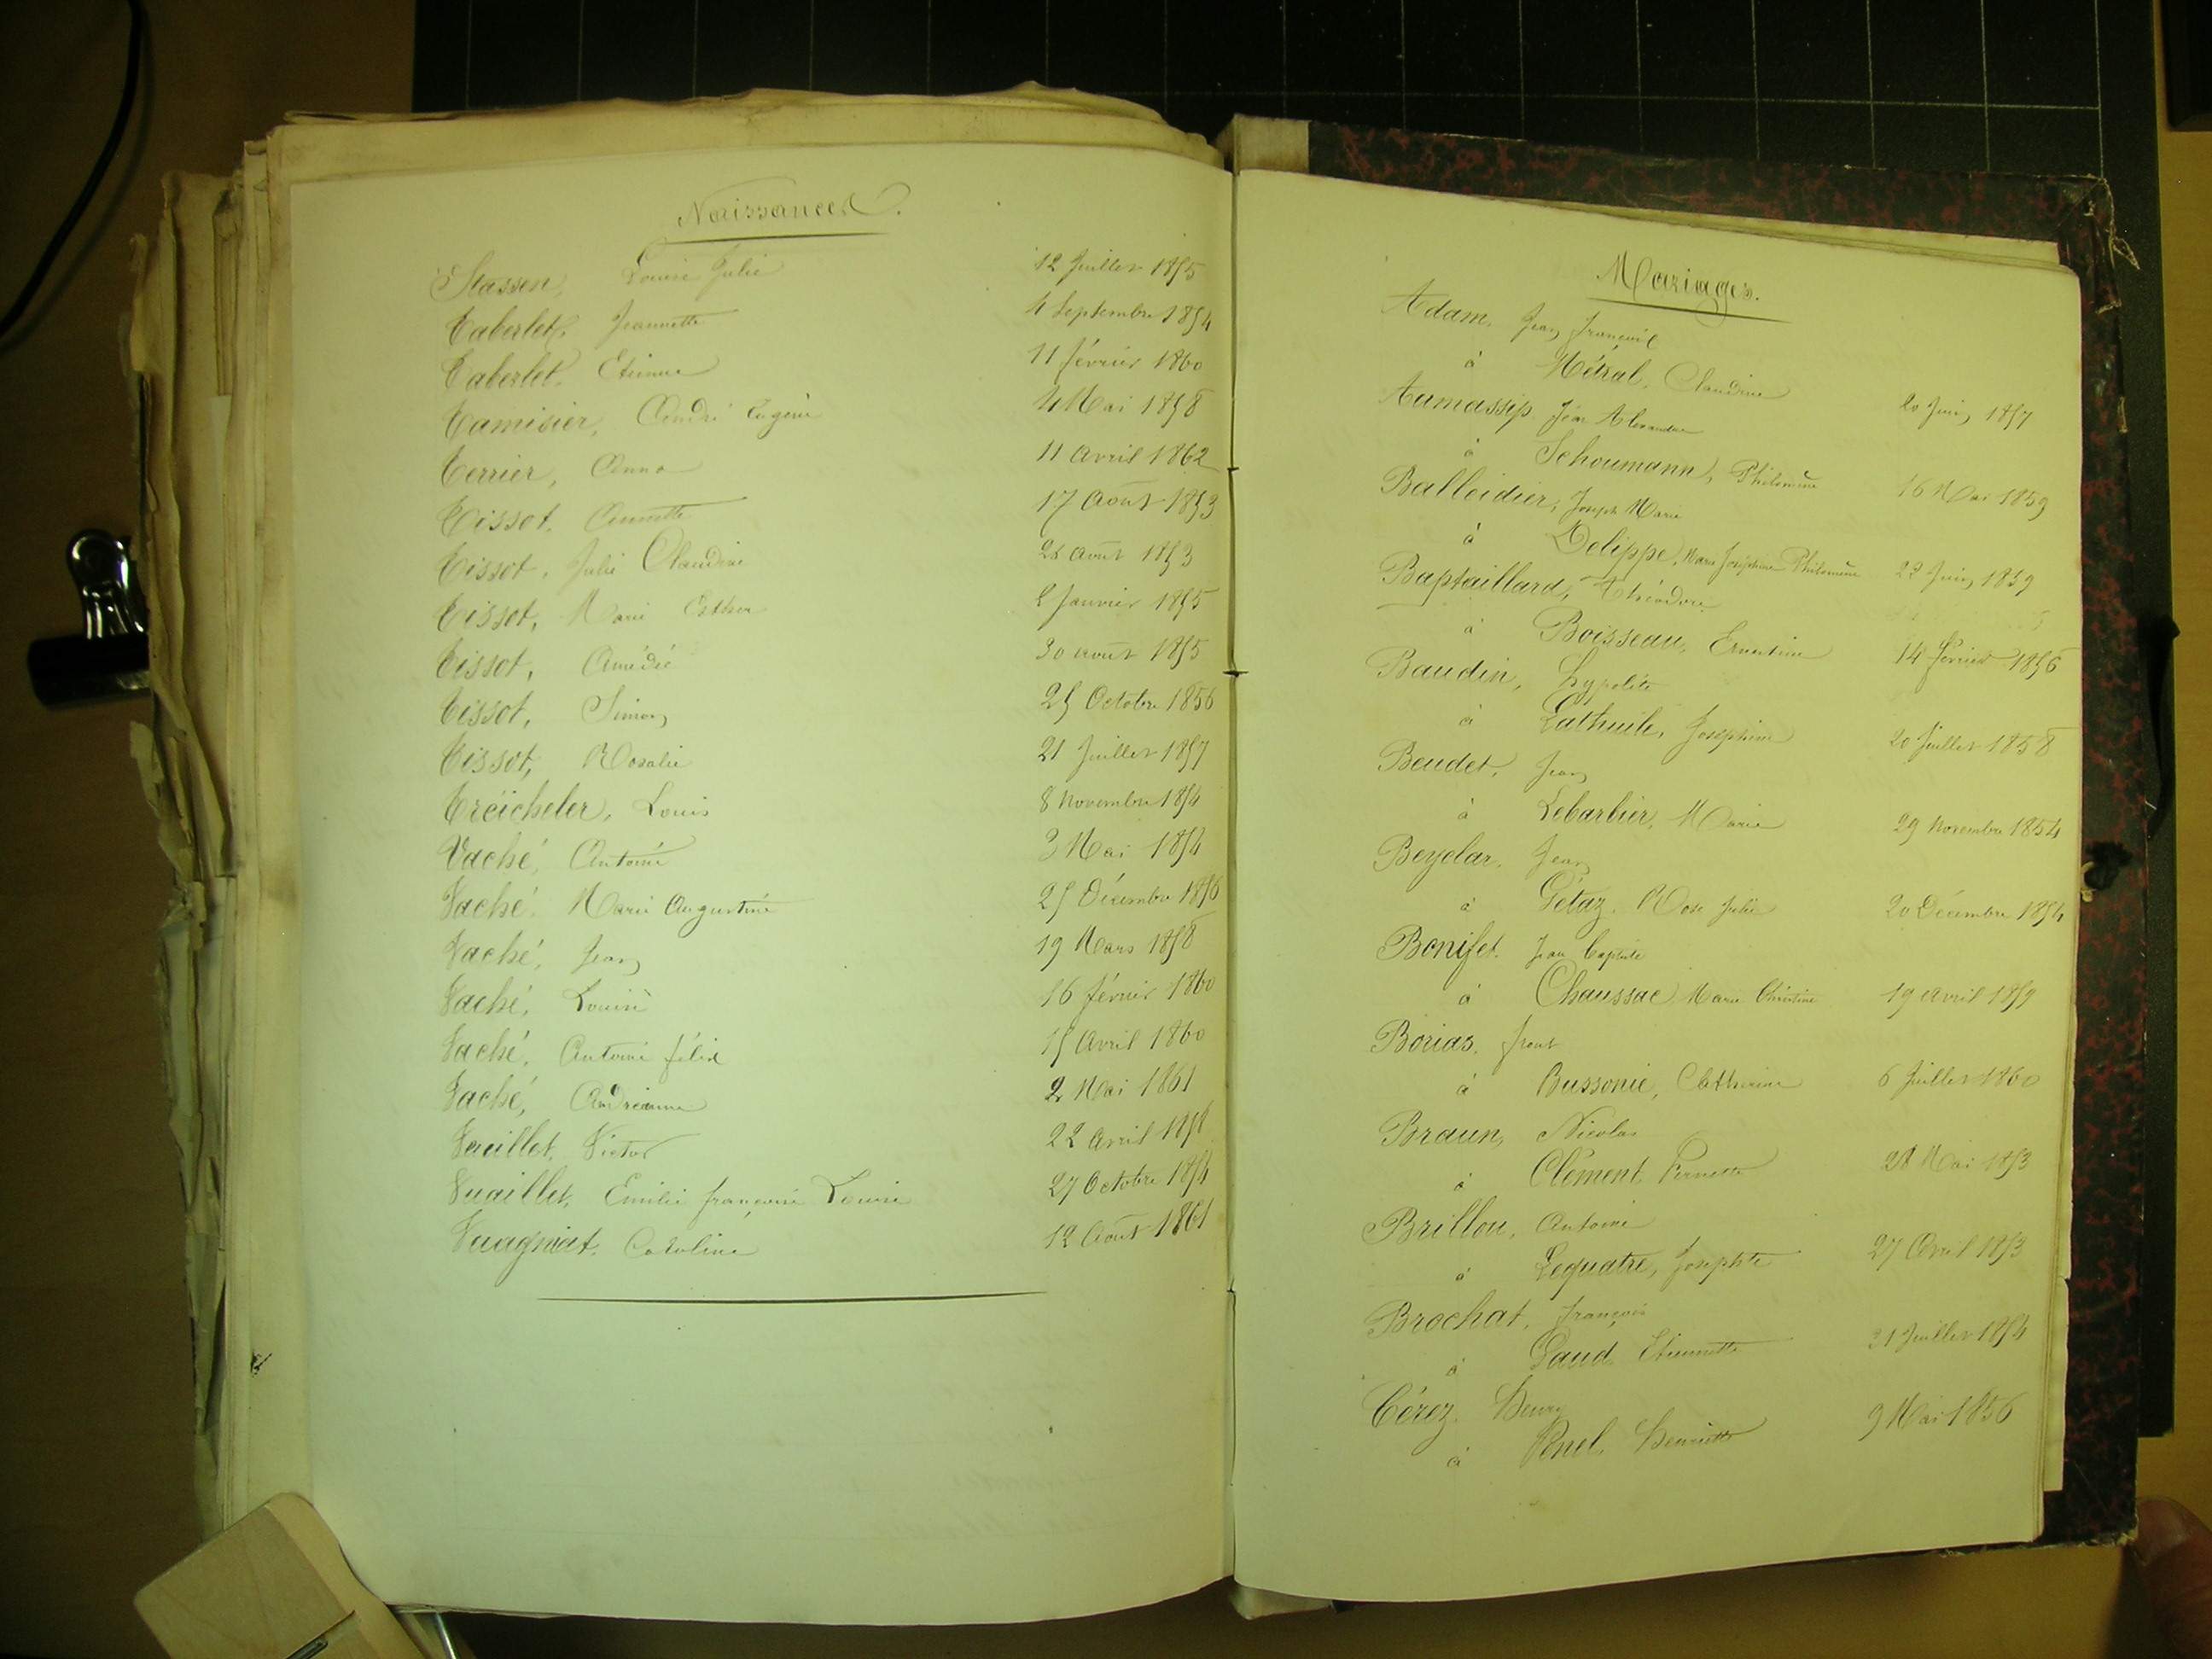 Naissances.
Stassen, Louise Julie 12 Juillet 1855
Taberlet, Jeannette 4 Septembre 1854
Taberlet, Etienne 11 février 1860
Tamisier, André Eugène 4 Mai 1858
Terrier, Anna 11 avril 1862
Tissot, Annette 17 Août 1853
Tissot, Julie Claudine 28 août 1853
Tissot, Marie Esther Janvier 1855
Tissot, Amédée 30 août 1855
Tissot, Simon 25 Octobre 1856
Tissot, Rosalie 21 Juillet 1857
Treicheler, Louis 8 Novembre 1854
Vaché, Antoine 3 Mai 1854
Vaché, Marie Augustine 25 Décembre 1856
Vaché, Jean 19 Mars 1858
Vaché, Louise 16 février 1860
Vaché, Antoine félix 15 Avril 1860
Vaché, Andréanne 2 Mai 1861
Victor 22 Avril
Vuaillet, Emilie françoise Louise 27 Octobre 1854
Vuagniat, Caroline 12 Août 1861
Mariages.
Adam, Jean François
à Métral, Claudine 20 Juin 1857
Aumassip Jean Alexandre
à Schoumann, Philomène 16 Mai 1859
Balleidier, Joseph Marie
à Delippe, Marie Joséphine Philomène 22 Juin 1859
Baptaillard, Théodore
à Boisseau, Ernestine 14 février 1856
Baudin, hypolite
à Lathuile, Joséphine 20 Juillet 1858
Beudet, Jean
à Lebarbier, Marie 29 Novembre 1854
Beyelar, Jean
à Gétaz, Rose Julie 20 Décembre 1854
Bonifet, Jean Baptiste
à Chaussac Marie Christine 19 avril
Borias,
à Bussonie, Catherine 6 Juillet 1860
Braun, Nicolas
à Clément, Pernette 28 Mai 1853
Brillou, Antoine
à Lequatre, Josephte 27 Avril 1853
Brochat, françois
à Gaud, Etiennette 31 Juillet 1854
Cérez, Henry
à Penel, Henriette 9 Mai 1856